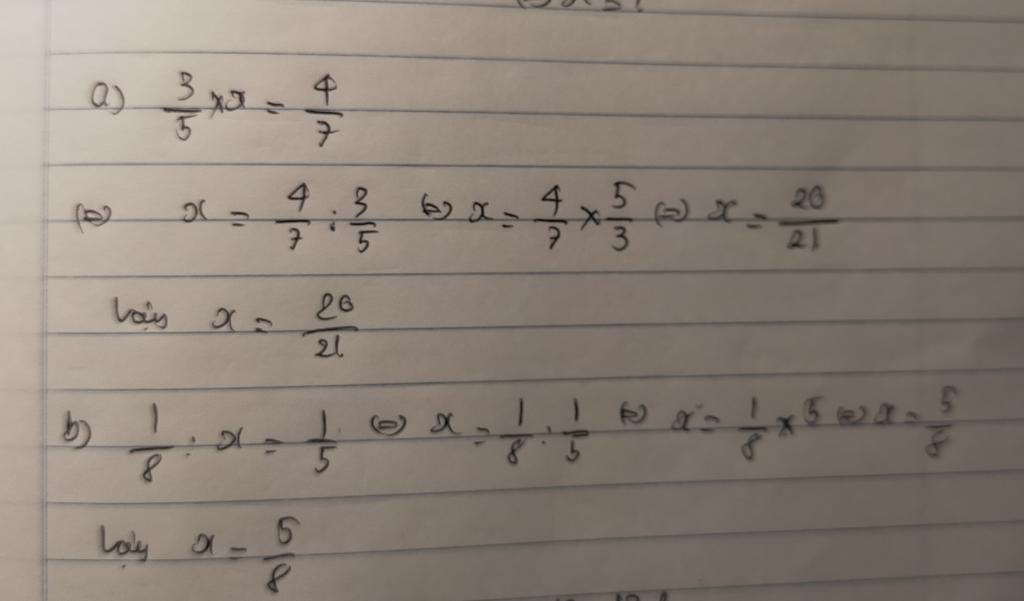 a) 3/5 × x = 4/7
(=) x = 4/7 : 3/5 (=) x = 4/7 × 5/3 (=) x = 20/21
Vậy x = 20/21
b) 1/8 : x = 1/5 (=) x = 1/8 : 1/5 (=) x = 1/8 × 5 (=) x = 5/8
Vậy x = 5/8